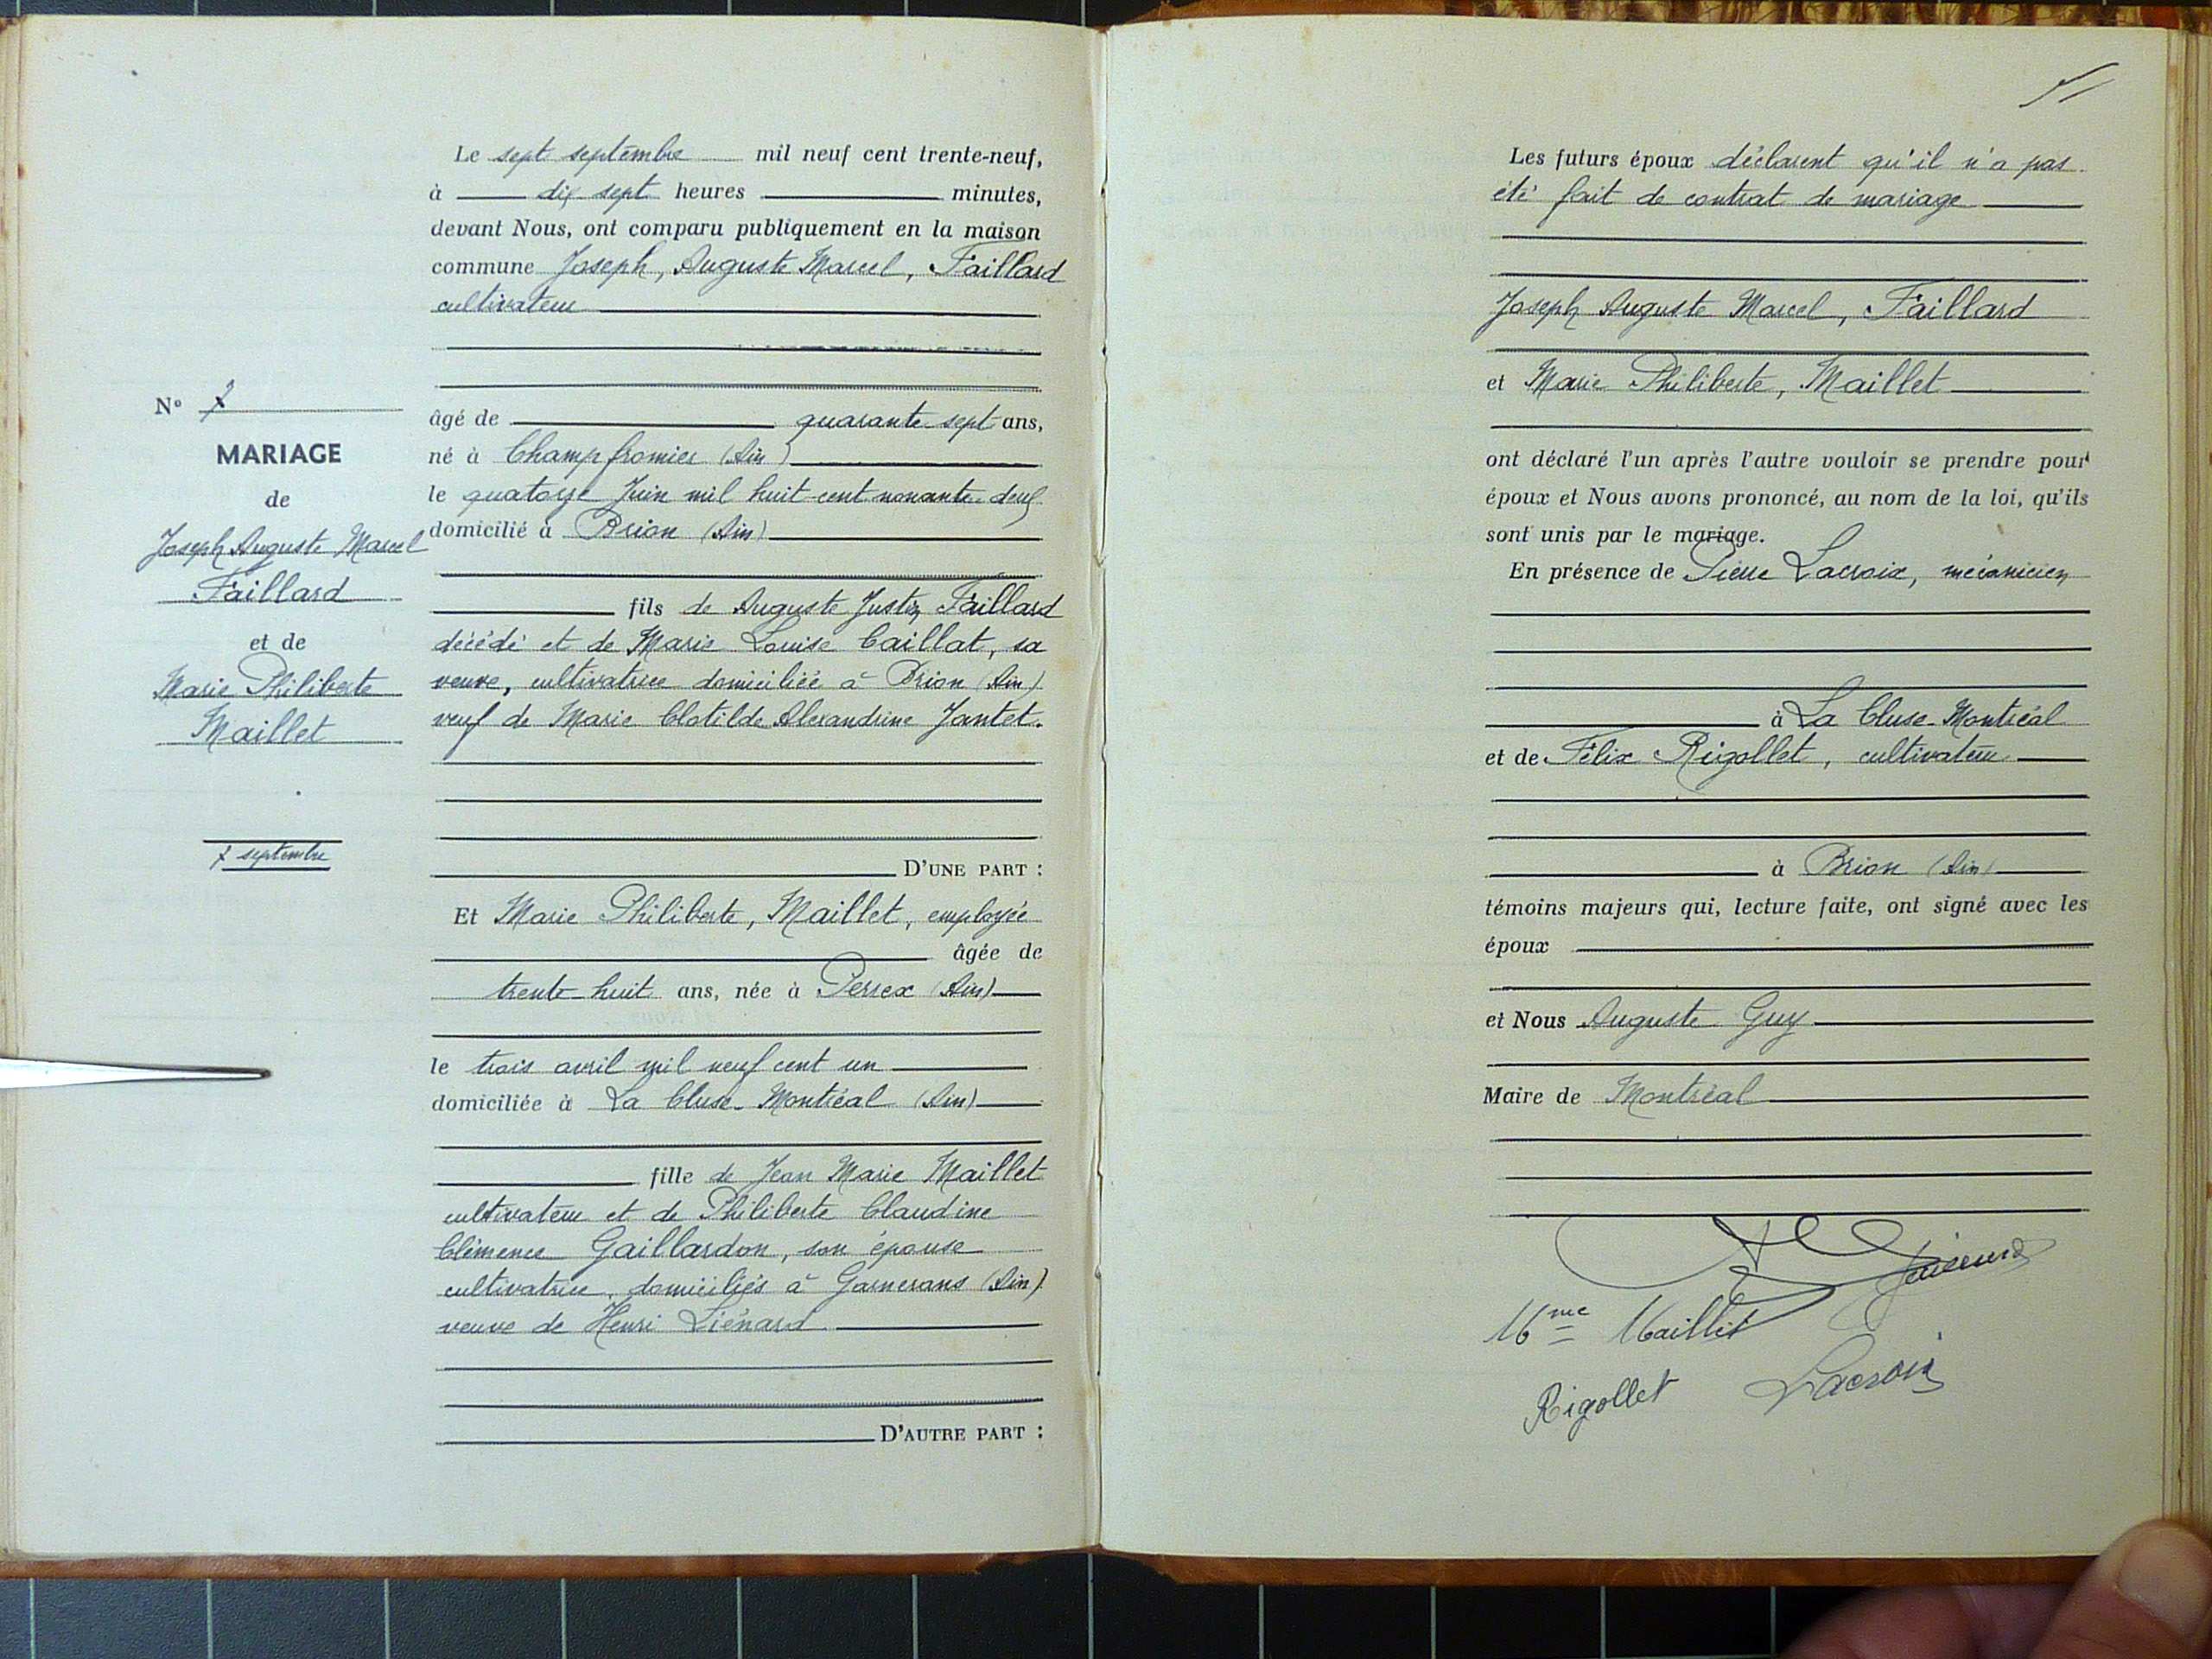 Le sept septembre mil neuf cent trente-neuf,
à dix sept heures minutes,
devant Nous, ont comparu publiquement en la maison
commune Joseph, Auguste Marcel, Faillard
cultivateur
âgé de quarante-sept ans,
né à Champfromier (Ain)
le quatorze Juin mil huit-cent nonante-deux
domicilié à Brion (Ain)
fils de Auguste Justin Faillard
décédé et de Marie Louise Caillat, sa
veuve, cultivatrice domiciliée à Brion (Ain)
veuf de Marie Clotilde Alexandrine Jantet.
D'UNE PART :
Et Marie Philiberte, Maillet, employée
âgée de
trente-huit ans, née à Perrex (Ain)
le trois avril mil neuf cent un
domiciliée à La Cluse-Montréal (Ain)
fille de Jean Marie Maillet
cultivateur et de Philiberte Claudine
Clémence Gaillardon, son épouse
cultivatrice, domiciliés à Garnerans (Ain)
veuve de Henri Liénard
D'AUTRE PART :
N° 7
MARIAGE
de
Joseph Auguste Marcel
Faillard
et de
Marie Philiberte
Maillet
7 septembre
Les futurs époux déclarent qu'il n'a pas
été fait de contrat de mariage
Joseph Auguste Marcel, Faillard
et Marie Philiberte, Maillet
ont déclaré l'un après l'autre vouloir se prendre pour
époux et Nous avons prononcé, au nom de la loi, qu'ils
sont unis par le mariage.
En présence de Pierre Lacroix, mécanicien
à La Cluse-Montréal
et de Félix Rigollet, cultivateur
à Brion (Ain)
témoins majeurs qui, lecture faite, ont signé avec les
époux
et Nous Auguste Guy
Maire de Montréal
Mme Maillet
Rigollet Lacroix